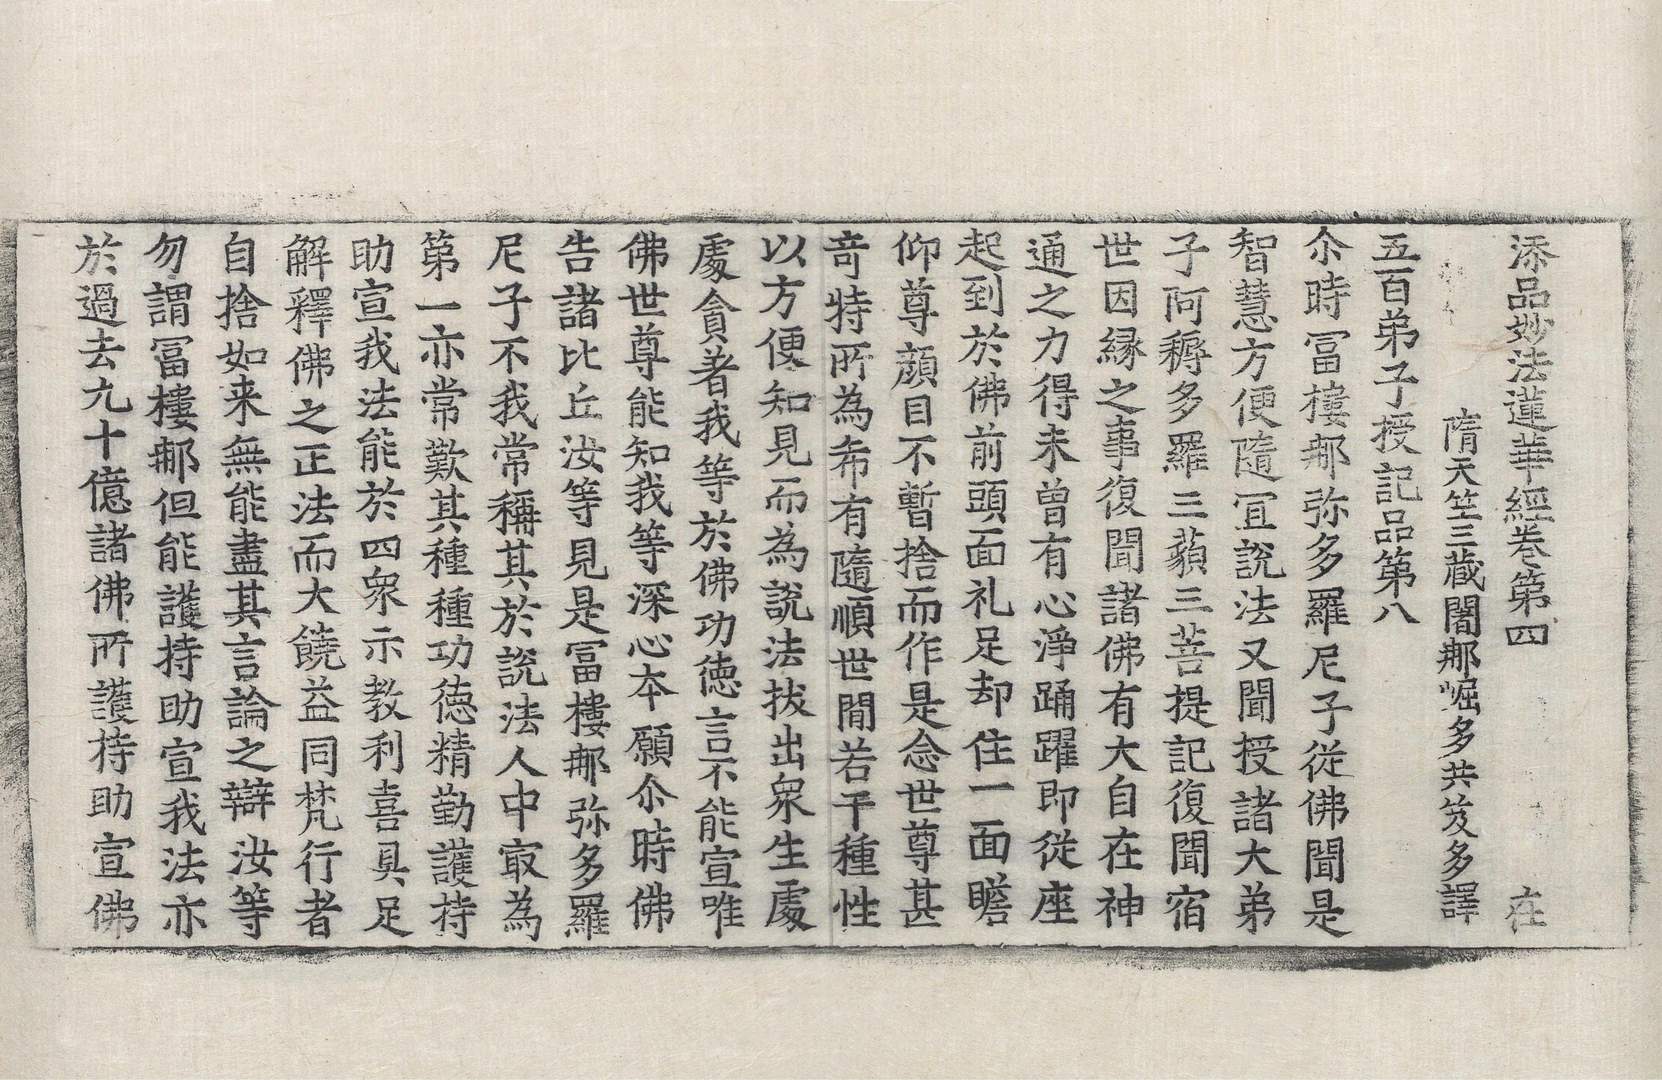 添品妙法蓮華經卷第四 在
隋天竺三藏闍那崛多共笈多譯
五百弟子授記品第八
尒時冨樓那弥多羅尼子從佛聞是
智慧方便隨冝說法又聞授諸大弟
子阿耨多羅三藐三菩提記復聞宿
世因縁之事復聞諸佛有大自在神
通之力得未曾有心淨踊躍即從座
起到於佛前頭面礼足却住一面瞻
仰尊顔目不暫捨而作是念世尊甚
竒特所為希有隨順世間若干種性
以方便知見而為說法拔出衆生處
處貪著我等於佛功徳言不能宣唯
佛世尊能知我等深心本願尒時佛
告諸比丘汝等見是冨樓那弥多羅
尼子不我常稱其於說法人中冣為
第一亦常歎其種種功徳精勤護持
助宣我法能於四衆示教利喜具足
解釋佛之正法而大饒益同梵行者
自捨如来無能盡其言論之辯汝等
勿謂冨樓那但能護持助宣我法亦
於過去九十億諸佛所護持助宣佛